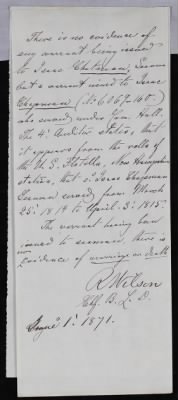 There is no evidence of
any warrant being issued
to Isaac Chatman, Seaman
but a warrant issued to Isaac
Chapman
who served under from Hull.
The 4th Auditor states, that
it appears from the rolls of
the U.S. Flotilla, New Hampshire
station, that Isaac Chapman
Seaman served from March
25th 1814 to April 3rd 1815.
The warrant having been
issued to seaman, there is
no evidence of marriage or death
R Wilson
Clk. B. L. D.
Augt 1st 1871.